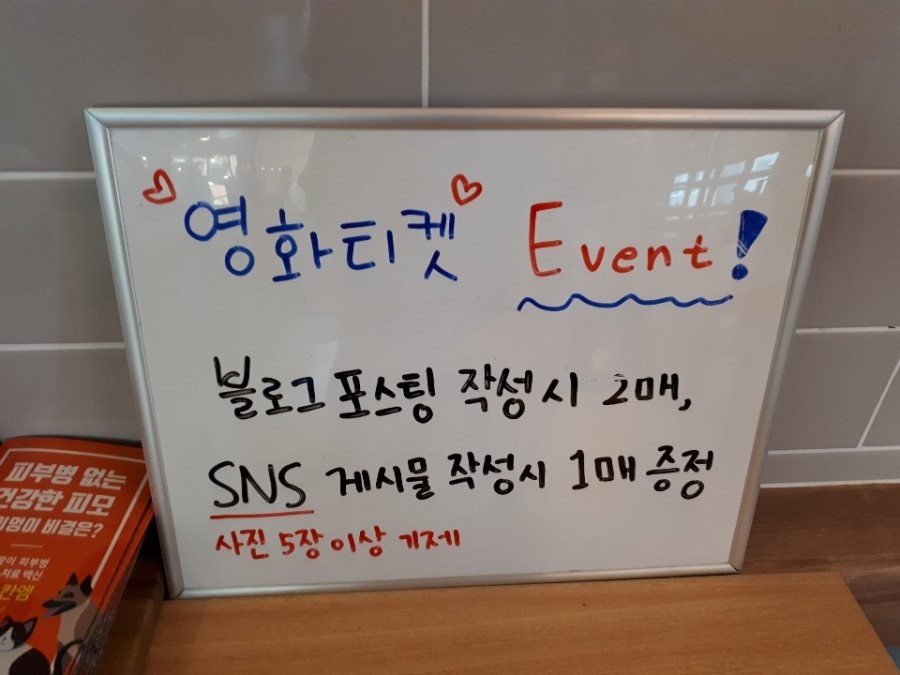 영화티켓 Event!
블로그 포스팅 작성시 2매,
SNS 게시물 작성시 1매 증정
사진 5장 이상 기제
피부병 없는
건강한 피모
비결은?
피부병
치료 백신
칸엠